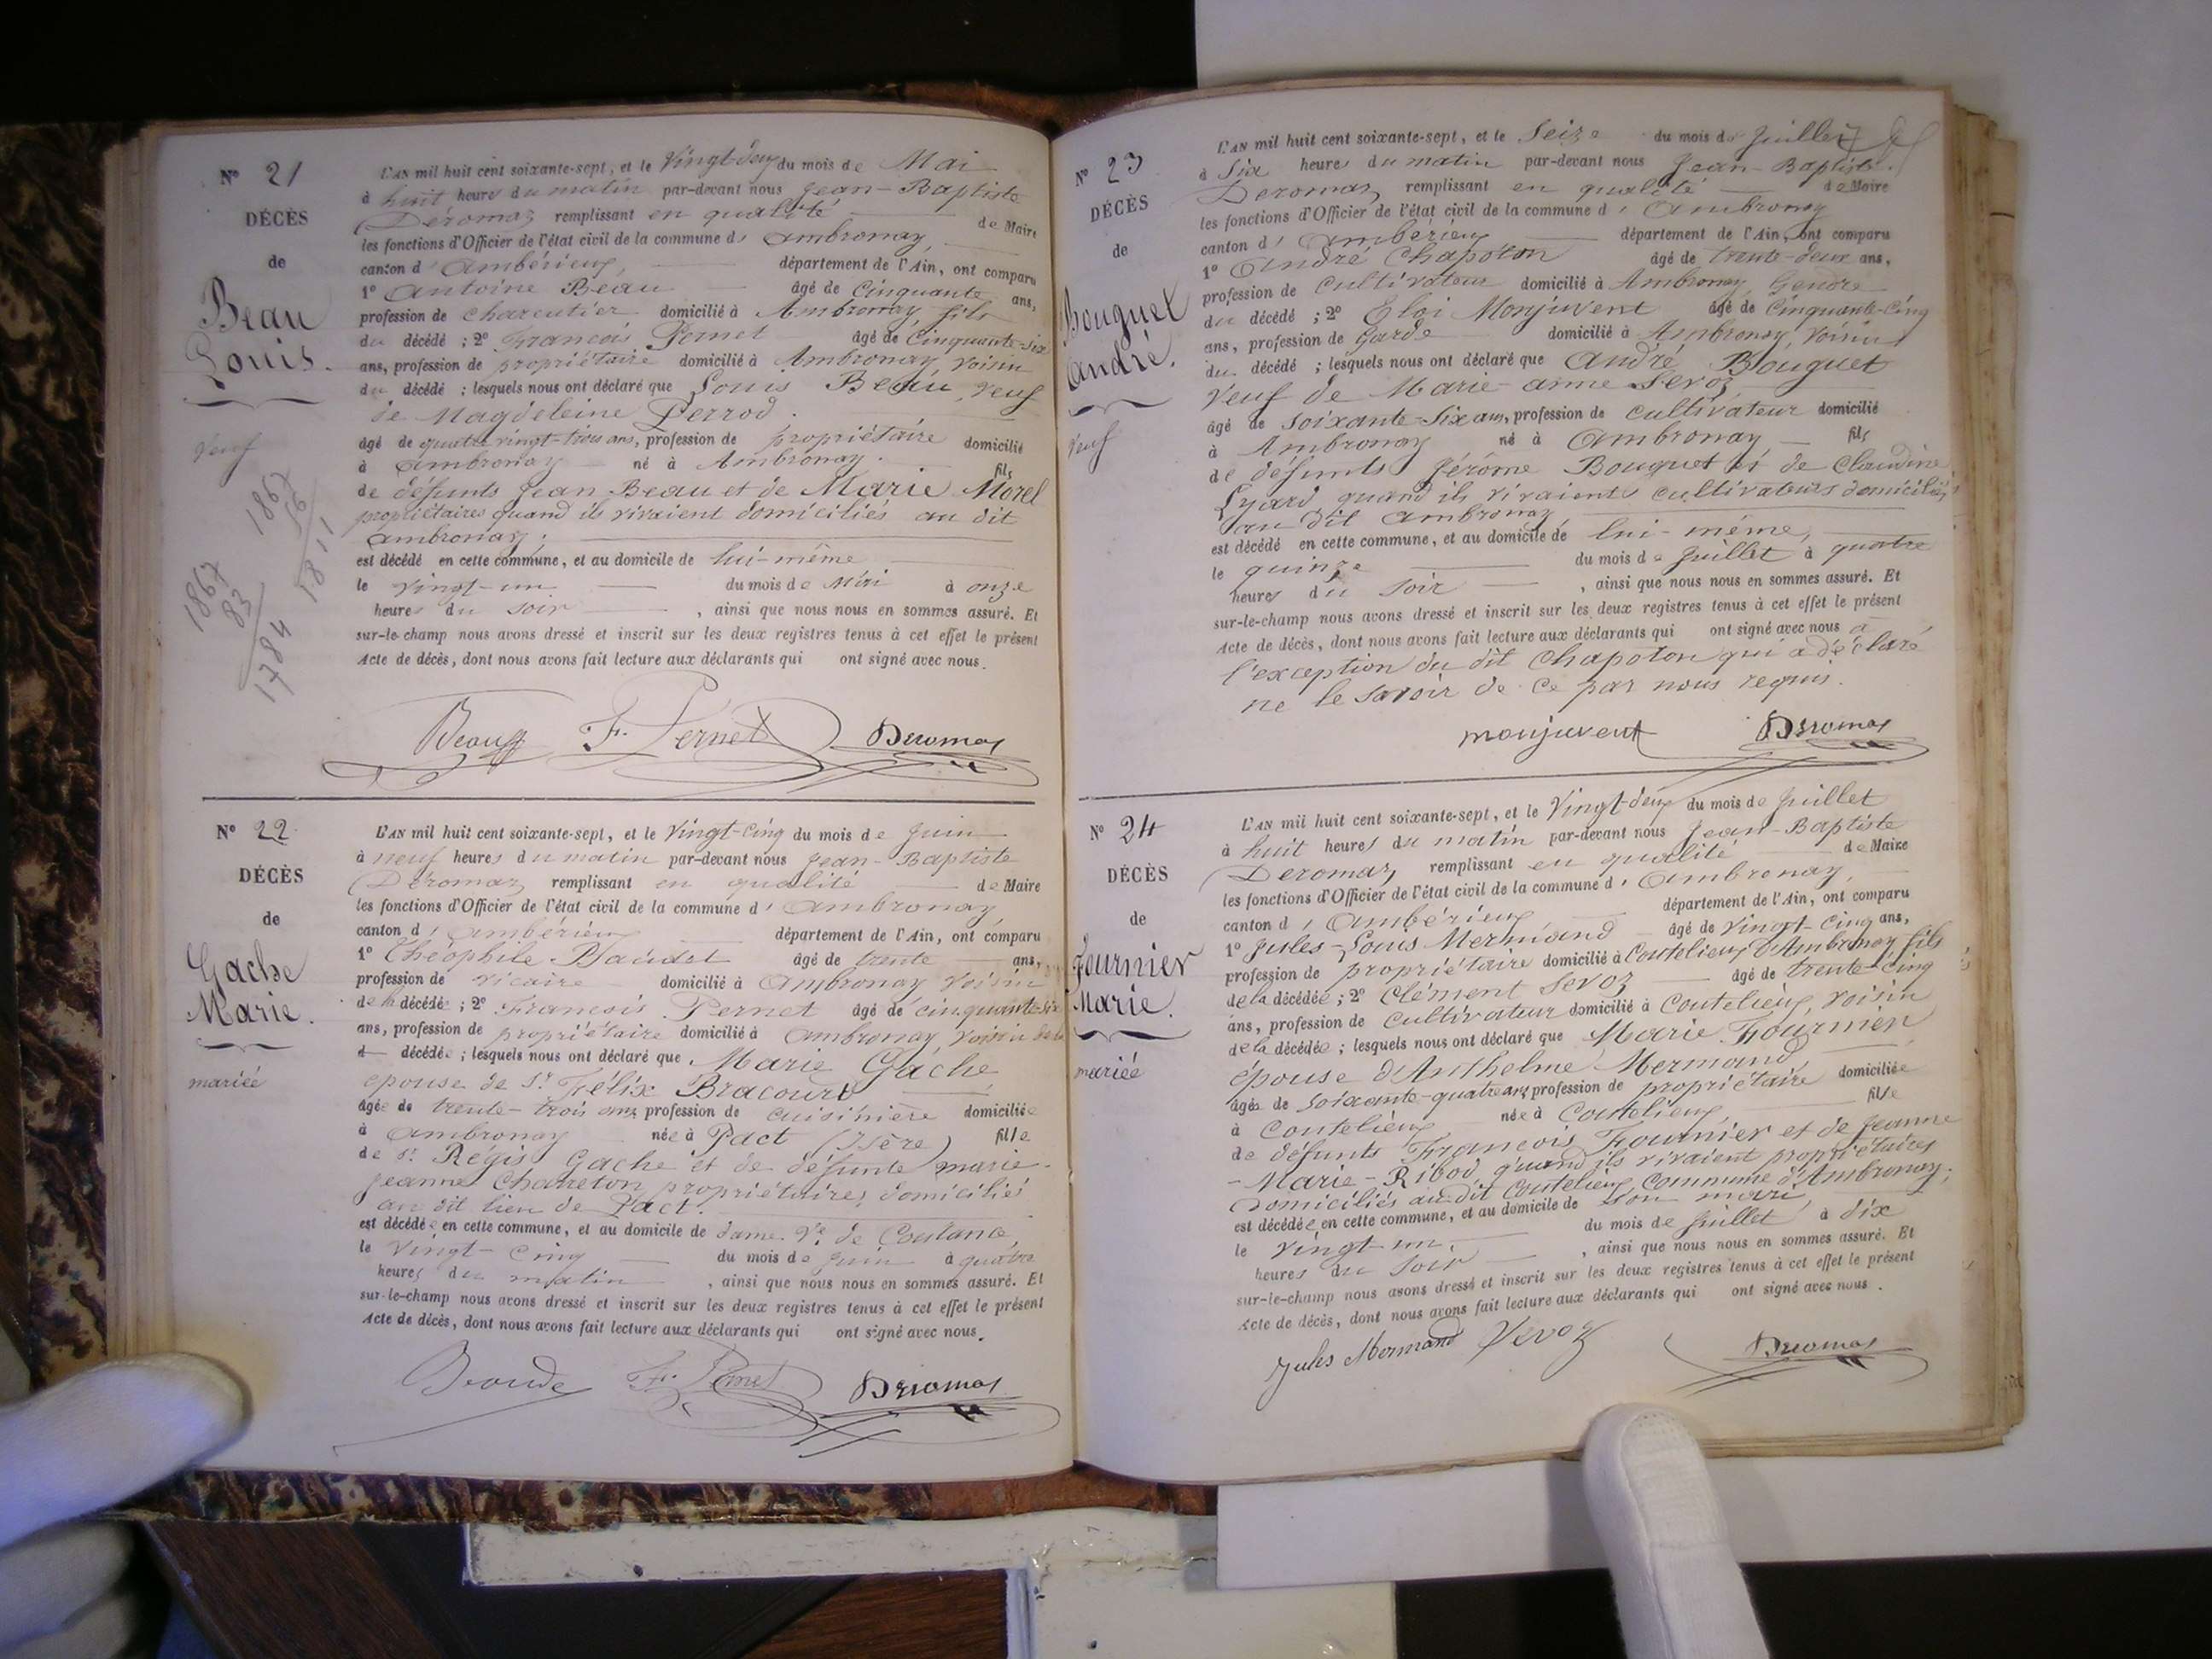 N° 21
DÉCÈS
de
Beau
Louis.
veuf
1867
56
1811
1867
83
1784
L'AN mil huit cent soixante-sept, et le vingt-deux du mois de Mai
à huit heures du matin par-devant nous Jean-Baptiste
Déromaz remplissant en qualité de Maire
les fonctions d'Officier de l'état civil de la commune d'Ambronay
canton d'Ambérieux, département de l'Ain, ont comparu
1° Antoine Beau âgé de Cinquante ans,
profession de charcutier domicilié à Ambronay fils
du décédé ; 2° François Pernet âgé de Cinquante-six
ans, profession de propriétaire domicilié à Ambronay, voisin
du décédé ; lesquels nous ont déclaré que Louis Beau, veuf
de Magdeleine Perrod.
âgé de quatre vingt-trois ans, profession de propriétaire domicilié
à Ambronay né à Ambronay. fils
de défunts Jean Beau et de Marie Morel
propriétaires quand ils vivaient domiciliés au dit
Ambronay.
est décédé en cette commune, et au domicile de lui-même
le vingt-un du mois de Mai à onze
heures du soir, ainsi que nous nous en sommes assuré. Et
sur-le-champ nous avons dressé et inscrit sur les deux registres tenus à cet effet le présent
Acte de décès, dont nous avons fait lecture aux déclarants qui ont signé avec nous.
Beau F. Pernet Deromas
N° 22
DÉCÈS
de
Gache
Marie.
mariée
L'AN mil huit cent soixante-sept, et le vingt-cinq du mois de Juin
à neuf heures du matin par-devant nous Jean-Baptiste
Déromaz remplissant en qualité de Maire
les fonctions d'Officier de l'état civil de la commune d'Ambronay
canton d'Ambérieux département de l'Ain, ont comparu
1° Théophile âgé de trente ans,
profession de vicaire domicilié à Ambronay voisin
de la décédée ; 2° François Pernet âgé de cinquante-six
ans, profession de propriétaire domicilié à Ambronay voisin de la
d décédée ; lesquels nous ont déclaré que Marie Gâche
épouse de Sr. Félix Bracourt
âgée de trente-trois ans profession de cuisinière domiciliée
à Ambronay née à Pact (Isère) fille
de Sr. Régis Gache et de défunte marie-
jeanne Charreton propriétaires domiciliés
au dit lieu de Pact.
est décédée en cette commune, et au domicile de dame Ve. de Coutance
le vingt-cinq du mois de Juin à quatre
heures du matin, ainsi que nous nous en sommes assuré. Et
sur-le-champ nous avons dressé et inscrit sur les deux registres tenus à cet effet le présent
Acte de décès, dont nous avons fait lecture aux déclarants qui ont signé avec nous.
F. Pernet Deromas
N° 23
DÉCÈS
de
Bouguet
André.
veuf
L'AN mil huit cent soixante-sept, et le Seize du mois de Juillet
à Six heures du matin par-devant nous Jean-Baptiste
Deromaz remplissant en qualité de Maire
les fonctions d'Officier de l'état civil de la commune d'Ambronay
canton d'Ambérieux département de l'Ain, ont comparu
1° André Chapoton âgé de trente-deux ans,
profession de Cultivateur domicilié à Ambronay, Gendre
du décédé ; 2° Eloi Monjuvent âgé de Cinquante-cinq
ans, profession de Garde domicilié à Ambronay, voisin
du décédé ; lesquels nous ont déclaré que André Bouguet
veuf de Marie-anne Sevoz
âgé de soixante-six ans, profession de cultivateur domicilié
à Ambronay né à Ambronay fils
de défunts Jérôme Bouguet et de Claudine
Lyard quand ils vivaient cultivateurs domiciliés
au dit Ambronay
est décédé en cette commune, et au domicile de lui-même,
le quinze du mois de Juillet à quatre
heures du soir, ainsi que nous nous en sommes assuré. Et
sur-le-champ nous avons dressé et inscrit sur les deux registres tenus à cet effet le présent
Acte de décès, dont nous avons fait lecture aux déclarants qui ont signé avec nous à
l'exception du dit Chapoton qui a déclaré
ne le savoir de ce par nous requis.
monjuvent Deromas
N° 24
DÉCÈS
de
Fournier
Marie.
mariée
L'AN mil huit cent soixante-sept, et le vingt-deux du mois de Juillet
à huit heures du matin par-devant nous Jean-Baptiste
Deromaz remplissant en qualité de Maire
les fonctions d'Officier de l'état civil de la commune d'Ambronay,
canton d'Ambérieux département de l'Ain, ont comparu
1° Jules-Louis Mermand âgé de vingt-cinq ans,
profession de propriétaire domicilié à Coutelieux d'Ambronay fils
de la décédée ; 2° Clément Sevoz âgé de trente-cinq
ans, profession de cultivateur domicilié à Coutelieux, voisin
de la décédée ; lesquels nous ont déclaré que Marie Fournier
épouse d'Anthelme Mermand,
âgée de soixante-quatre ans profession de propriétaire domiciliée
à Coutelieux née à Coutelieux, fille
de défunts François Fournier et de Jeanne
-Marie-Ribod quand ils vivaient propriétaires
domiciliés au dit Coutelieux Commune d'Ambronay,
est décédée en cette commune, et au domicile de son mari,
le vingt-un, du mois de Juillet à dix
heures du soir, ainsi que nous nous en sommes assuré. Et
sur-le-champ nous avons dressé et inscrit sur les deux registres tenus à cet effet le présent
Acte de décès, dont nous avons fait lecture aux déclarants qui ont signé avec nous.
Jules Mermand Sevoz Deromas